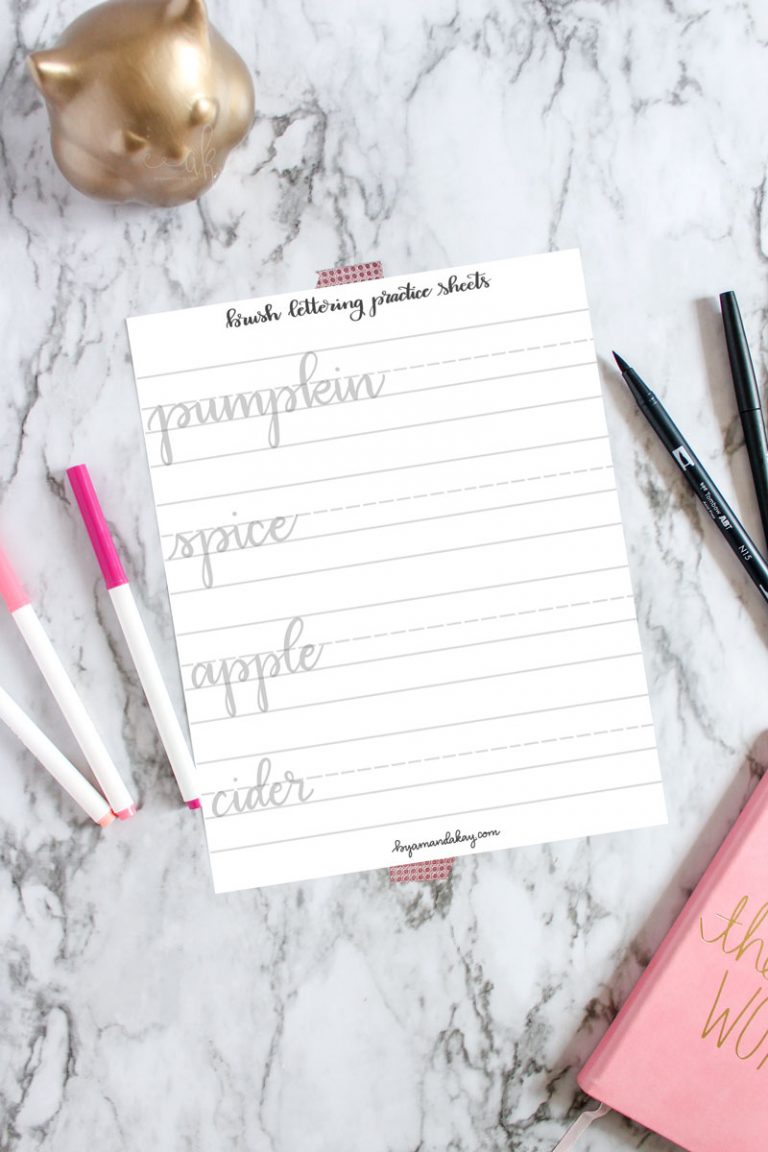 brush lettering practice sheets
pumpkin
spice
apple
cider
byamandakay.com
Tombow ABT
N15
the